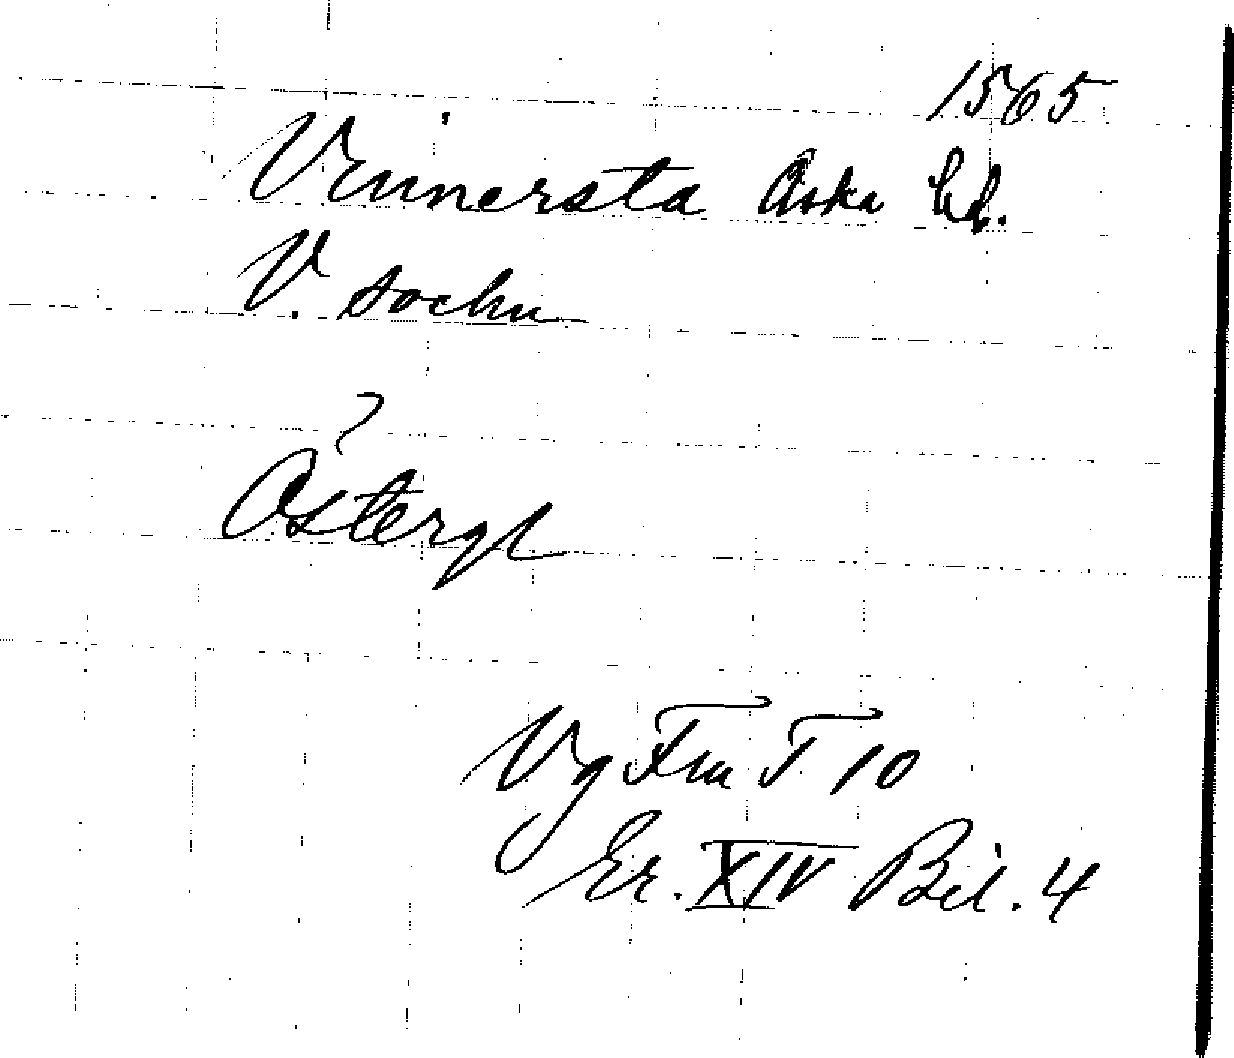 1565
Vinnersta Aska hd.
V. sochn
?
Östergl
Vg Fm T 10
Er. XIV Bil. 4